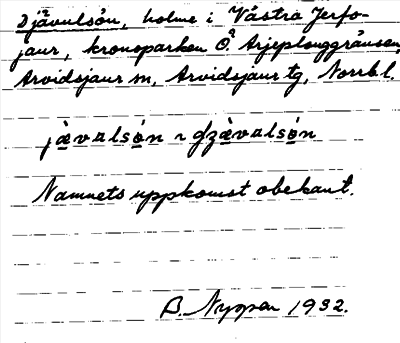 Djävulsön, holme i Västra Jerfo-
jaur, kronoparken Ö. Arjeploggränsen,
Arvidsjaur sn, Arvidsjaur tg, Norrb l.
jævalsón ı ɖzævalsón
Namnets uppkomst obekant.
B. Nyman 1932.